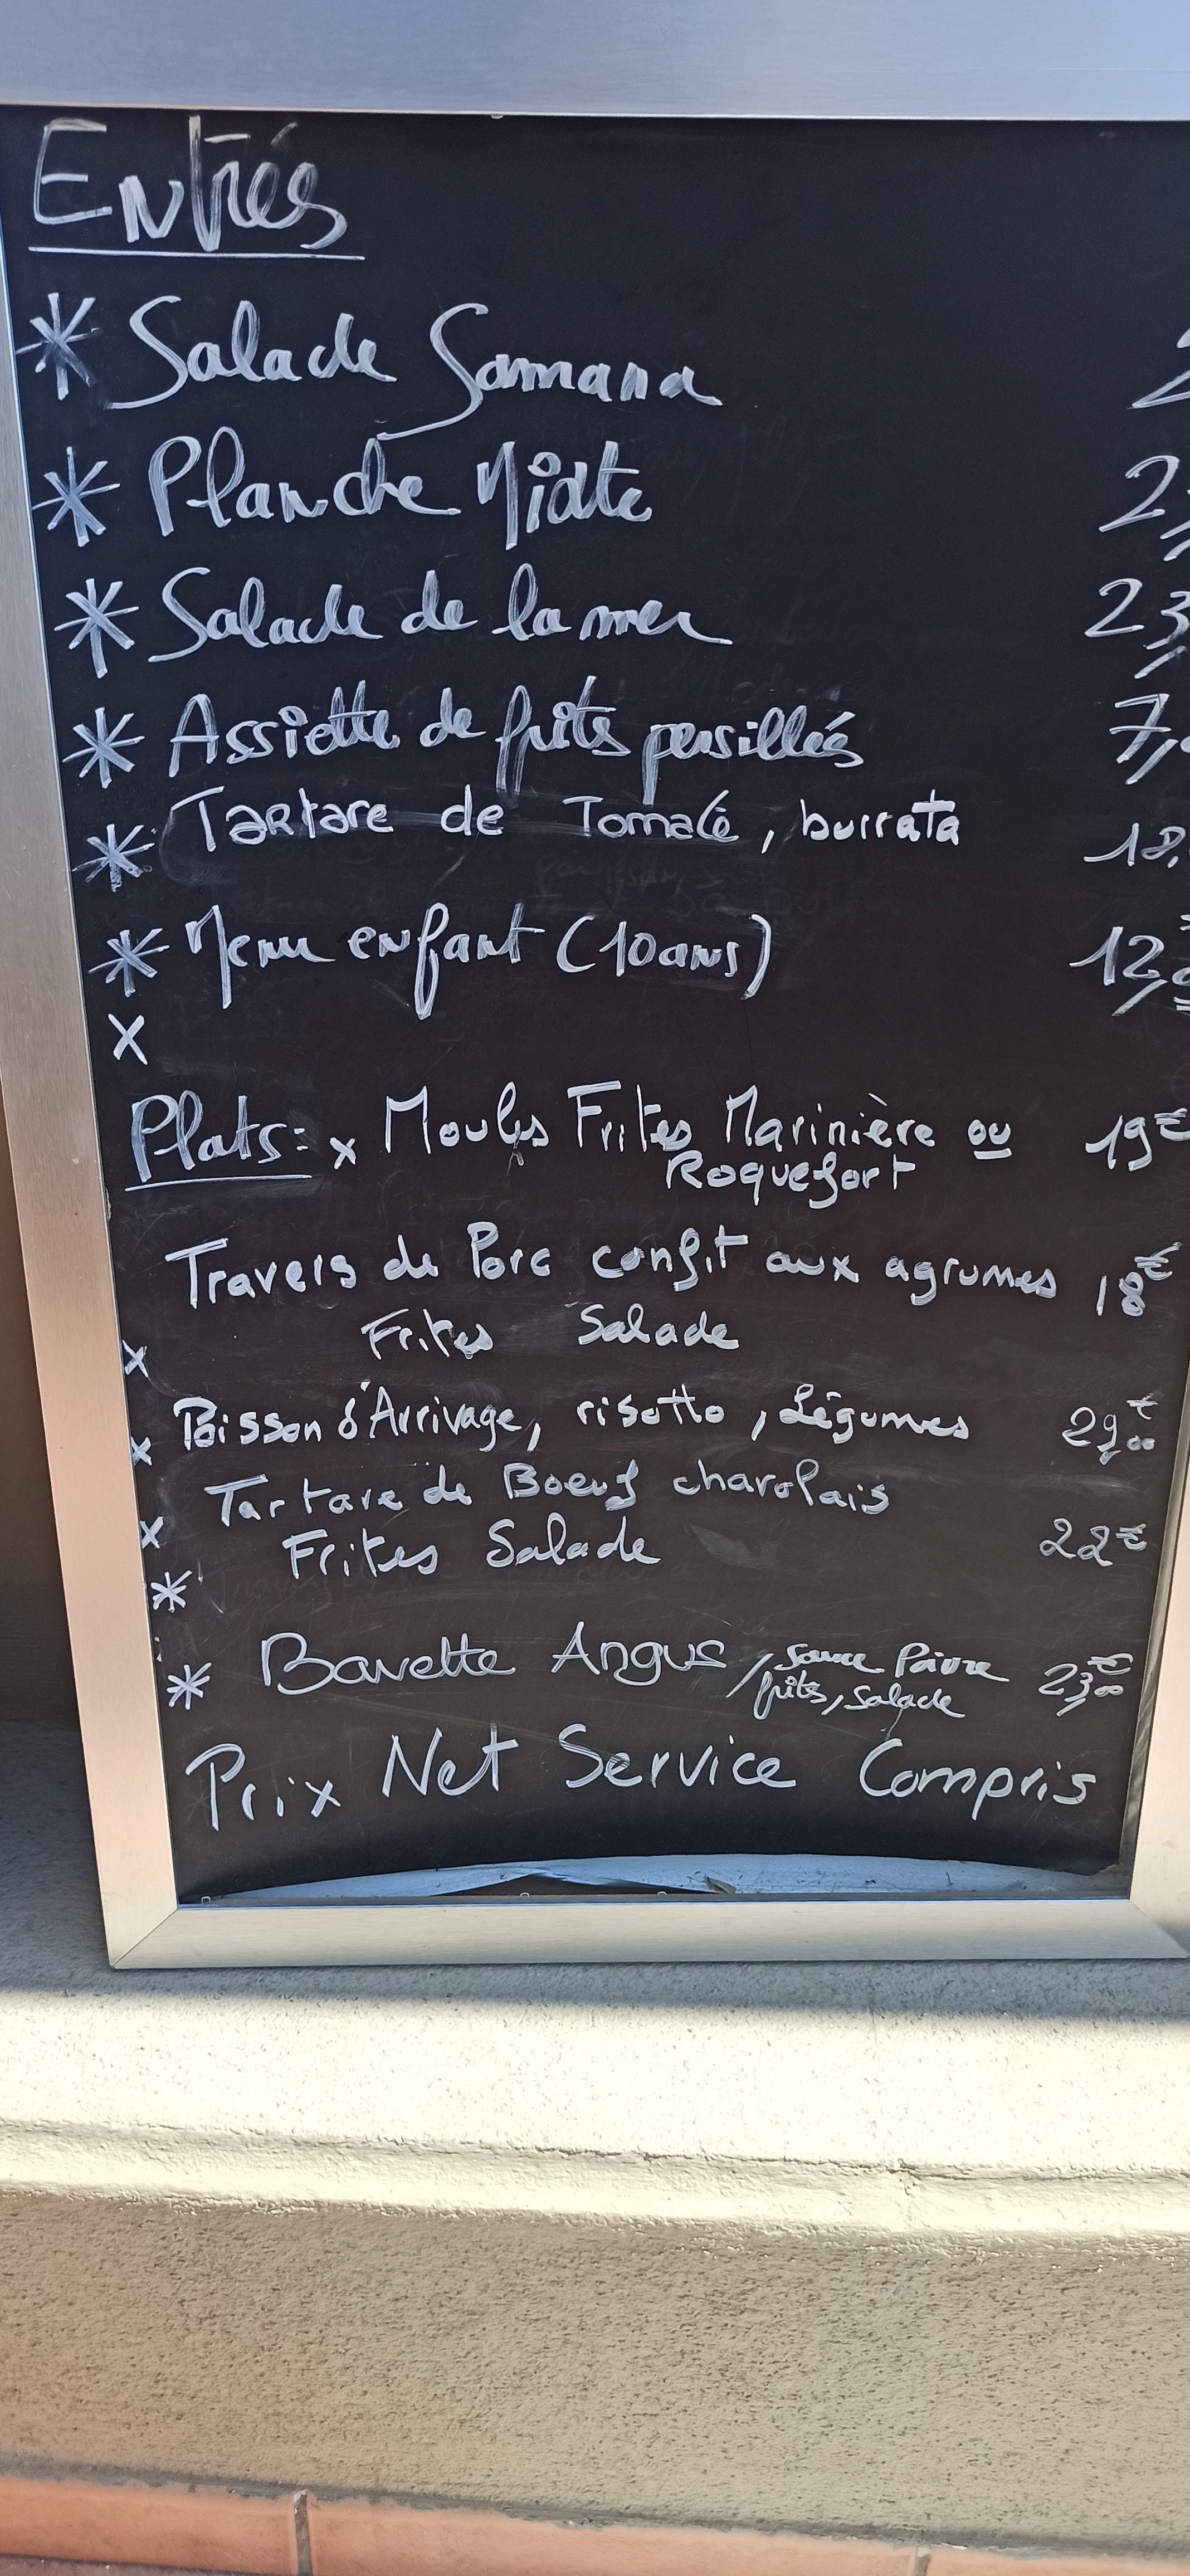 Entrés
* Salade Samana
* Planche Mixte 2
* Salade de la mer 23,
* Assiette de frites persillés 7,
* Tartare de Tomate, burrata 18,
* Menu enfant (10ans) 12,
x
Plats: x Moules Frites Marinière ou 19€
Roquefort
Travers de Porc confit aux agrumes 18€
x Frites Salade
x Poisson d'Arrivage, risotto, Légumes 29,00€
Tartare de Boeuf charolais
x Frites Salade 22€
*
* Bavette Angus, sauce Poivre 23,00€
frites, Salade
Prix Net Service Compris